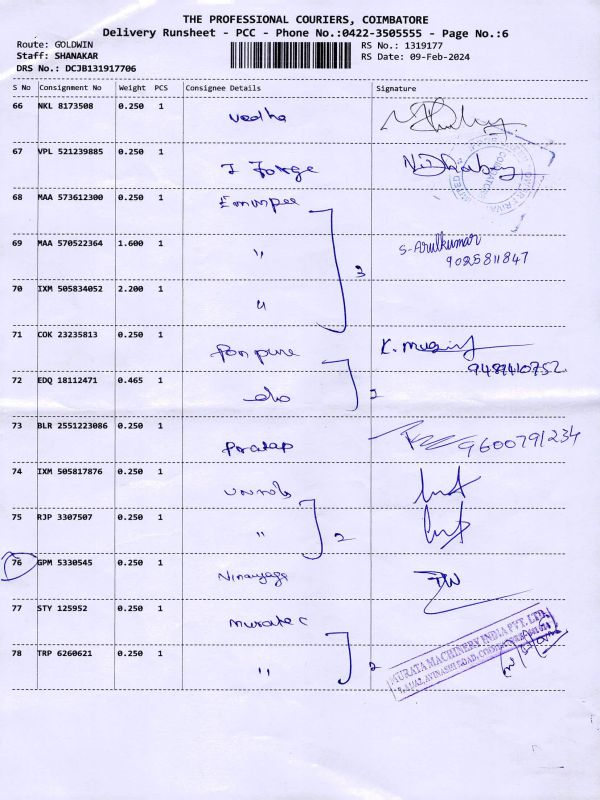 THE PROFESSIONAL COURIERS, COIMBATORE
Delivery Runsheet - PCC - Phone No.:0422-3505555 - Page No.:6
Route: GOLDWIN RS No.: 1319177
Staff: SHANAKAR RS Date: 09-Feb-2024
DRS No.: DCJB131917706
S No Consignment No Weight PCS Consignee Details Signature
66 NKL 8173508 0.250 1 Vedha
67 VPL 521239885 0.250 1 I Forge
68 MAA 573612300 0.250 1
69 MAA 570522364 1.600 1 " 3 S-Arulkumar
9025811847
70 IXM 505834052 2.200 1 "
71 COK 23235813 0.250 1 Pon pure K.
9489410752
72 EDQ 18112471 0.465 1 do 2
73 BLR 2551223086 0.250 1 Pratap 9600791234
74 IXM 505817876 0.250 1
75 RJP 3307507 0.250 1 " 2
76 GPM 5330545 0.250 1 Vinayaga
77 STY 125952 0.250 1 muratec
78 TRP 6260621 0.250 1 " 2
MURATA MACHINERY INDIA PVT. LTD.
AVINASHI ROAD,